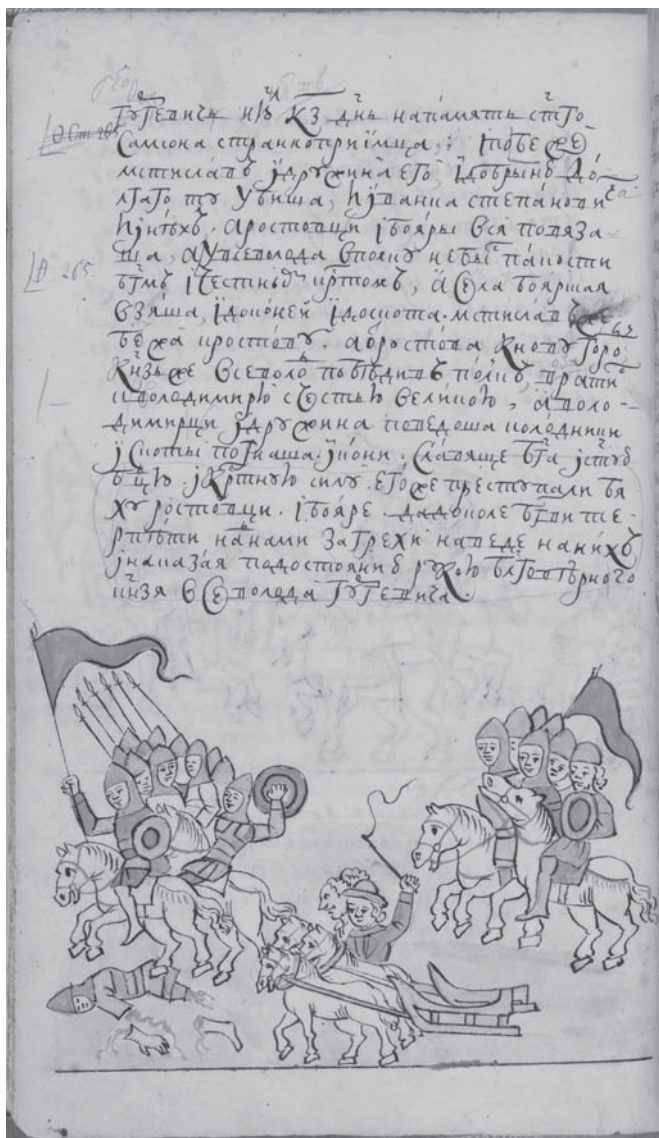 Гюргевичь нлⷣѣ к҃з дн҃ь на память ст҃го
Самсона страннопрїимца; побеже
мстиславъ ї дружина его, ї добрыню до
лгаго ту убиша, и їванка степанови ча
и їнѣхъ. а ростовци ї бояры вся повяза
ша, а у всеволода в полку не быⷭ пакости
бг҃мъ ї честныⷨ крⷭтомъ, а села боярская
взяша, ї кони ї скота. мстиславъ же
бежа к ростову. а ѿ ростова к новугоро
Кн҃зь же всеволоⷣ побѣдивъ полкъ, врати
к володимирю с честью великою, а воло-
димирци ї дружина поведоша колодники
ї скоты погнаша. ї кони. славяще бг҃а ї ст҃ую
бц҃ю. ї крⷭтную силу. егоже преступали бя
ху ростовци. ї бояре. да доколе бг҃ви те-
рпѣти наⷣ нами за грехи наведе на нихъ
ї наказая по достоянию рукою бл҃говѣрного
кн҃зя всеволода гюргевича.
265